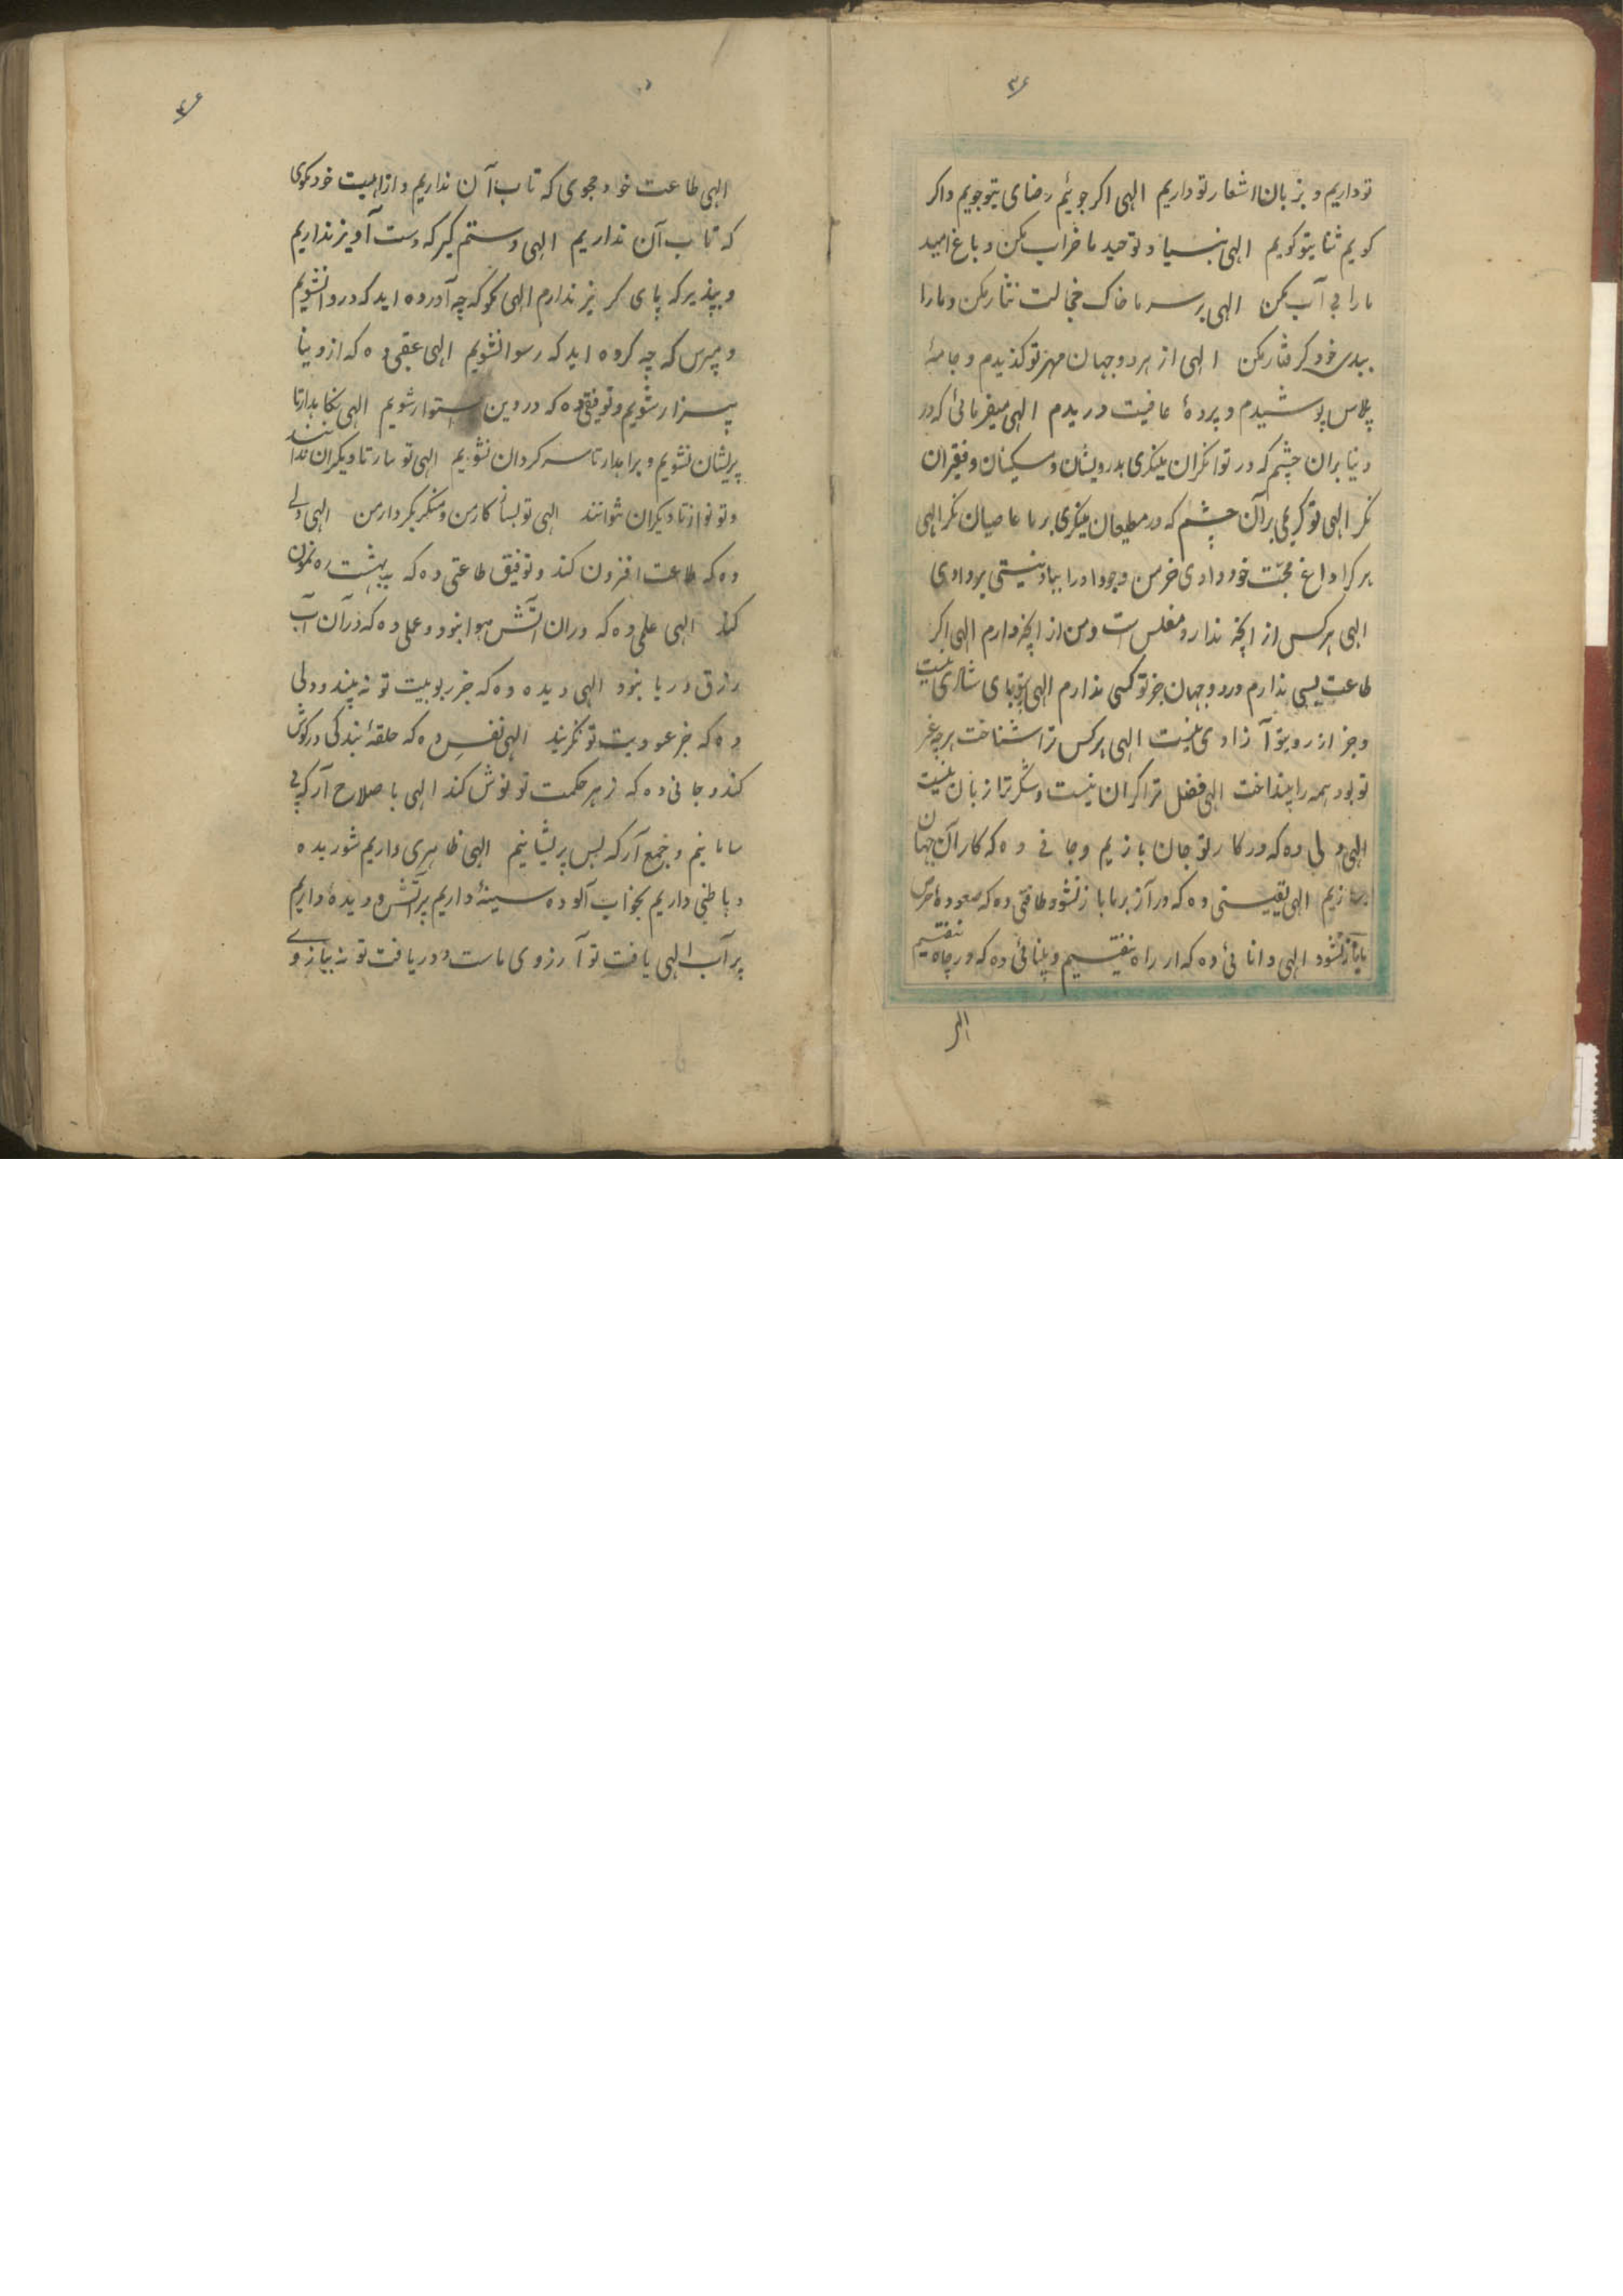 ۳۶
تو داریم و بزبان اشعار تو داریم الهی اکر جوئیم رضای تو جویم و اکر
کویم ثنا یتو کویم الهی بنیاد توحید ما خراب مکن و باغ امید
ما را بی آب مکن الهی بر سر ما خاک خجالت نثار مکن و ما را
ببدی خود کرفتار مکن الهی از هر دو جهان مهر تو کزیدم و جامهٔ
پلاس پوشیدم و پردهٔ عافیت دریدم الهی میفرمائی که در
دنیا بران چشم که در توانکران مینکری بدرویشان و مسکینان و فقیران
نکر الهی تو کریمی بر آن چشم که در مطیعان مینکری بر ما عاصیان نکر الهی
هر کرا داغ محبت خود دادی خرمن وجود او را بباد نیستی بر دادی
الهی هر کس از آنچه ندارد مفلس است و من از آنچه دارم الهی اکر
طاعت بسی ندارم در دو جهان جز تو کسی ندارم الهی بتو پای شادی نیست
و جز از رو بتو آزادی نیست الهی هر کس ترا شناخت هر چه غیر
تو بود همه را بینداخت الهی فضل ترا کران نیست و شکر ترا زبان نیست
الهی دلی ده که در کار تو جان بازیم و جانی ده که کار آن جهان
سازیم الهی یقینی ده که در آز بر ما باز نشود و طاقتی ده که صعوه حرص
ما باز نشود الهی دانائی ده که از راه نیفتیم و بینائی ده که در چاه نیفتیم
الهی
۳۶
الهی طاعت خود مجوی که تاب آن نداریم و از هیبت خود مکوی
که تاب آن نداریم الهی دستم کیر که دست آویز نداریم
و بپذیر که پای کریز ندارم الهی مکو که چه آورده اید که دروا نشویم
و مپرس که چه کرده اید که رسوا نشویم الهی عقبی ده که از دنیا
بیزار شویم و توفیقی ده که در دین استوار شویم الهی نکاهدار تا
پریشان نشویم و براه دار تا سرکردان نشویم الهی تو ساز تا دیکران ندانند
و تو نواز تا دیکران نتوانند الهی تو بساز کار من و منکر بکردار من الهی دلی
ده که طاعت افزون کند و توفیق طاعتی ده که ببهشت رهنمون
کند الهی علمی ده که در آن آتش هوا نبود و عملی ده که در آن آب
زرق و ریا نبود الهی دیده ده که جز ربوبیت تو نه بیند و دلی
ده که جز عبودیت تو نکزیند الهی نفسی ده که حلقهٔ بندکی در کوش
کند و جانی ده که زهر حکمت تو نوش کند الهی با صلاح آر که بی
سامانیم و جمع آر که بس پریشانیم الهی ظاهری داریم شوریده
و باطنی داریم بخواب آلوده سینهٔ داریم پر آتش و دیدهٔ داریم
پر آب الهی یافت تو آرزوی ماست و دریافت تو نه ببازوی